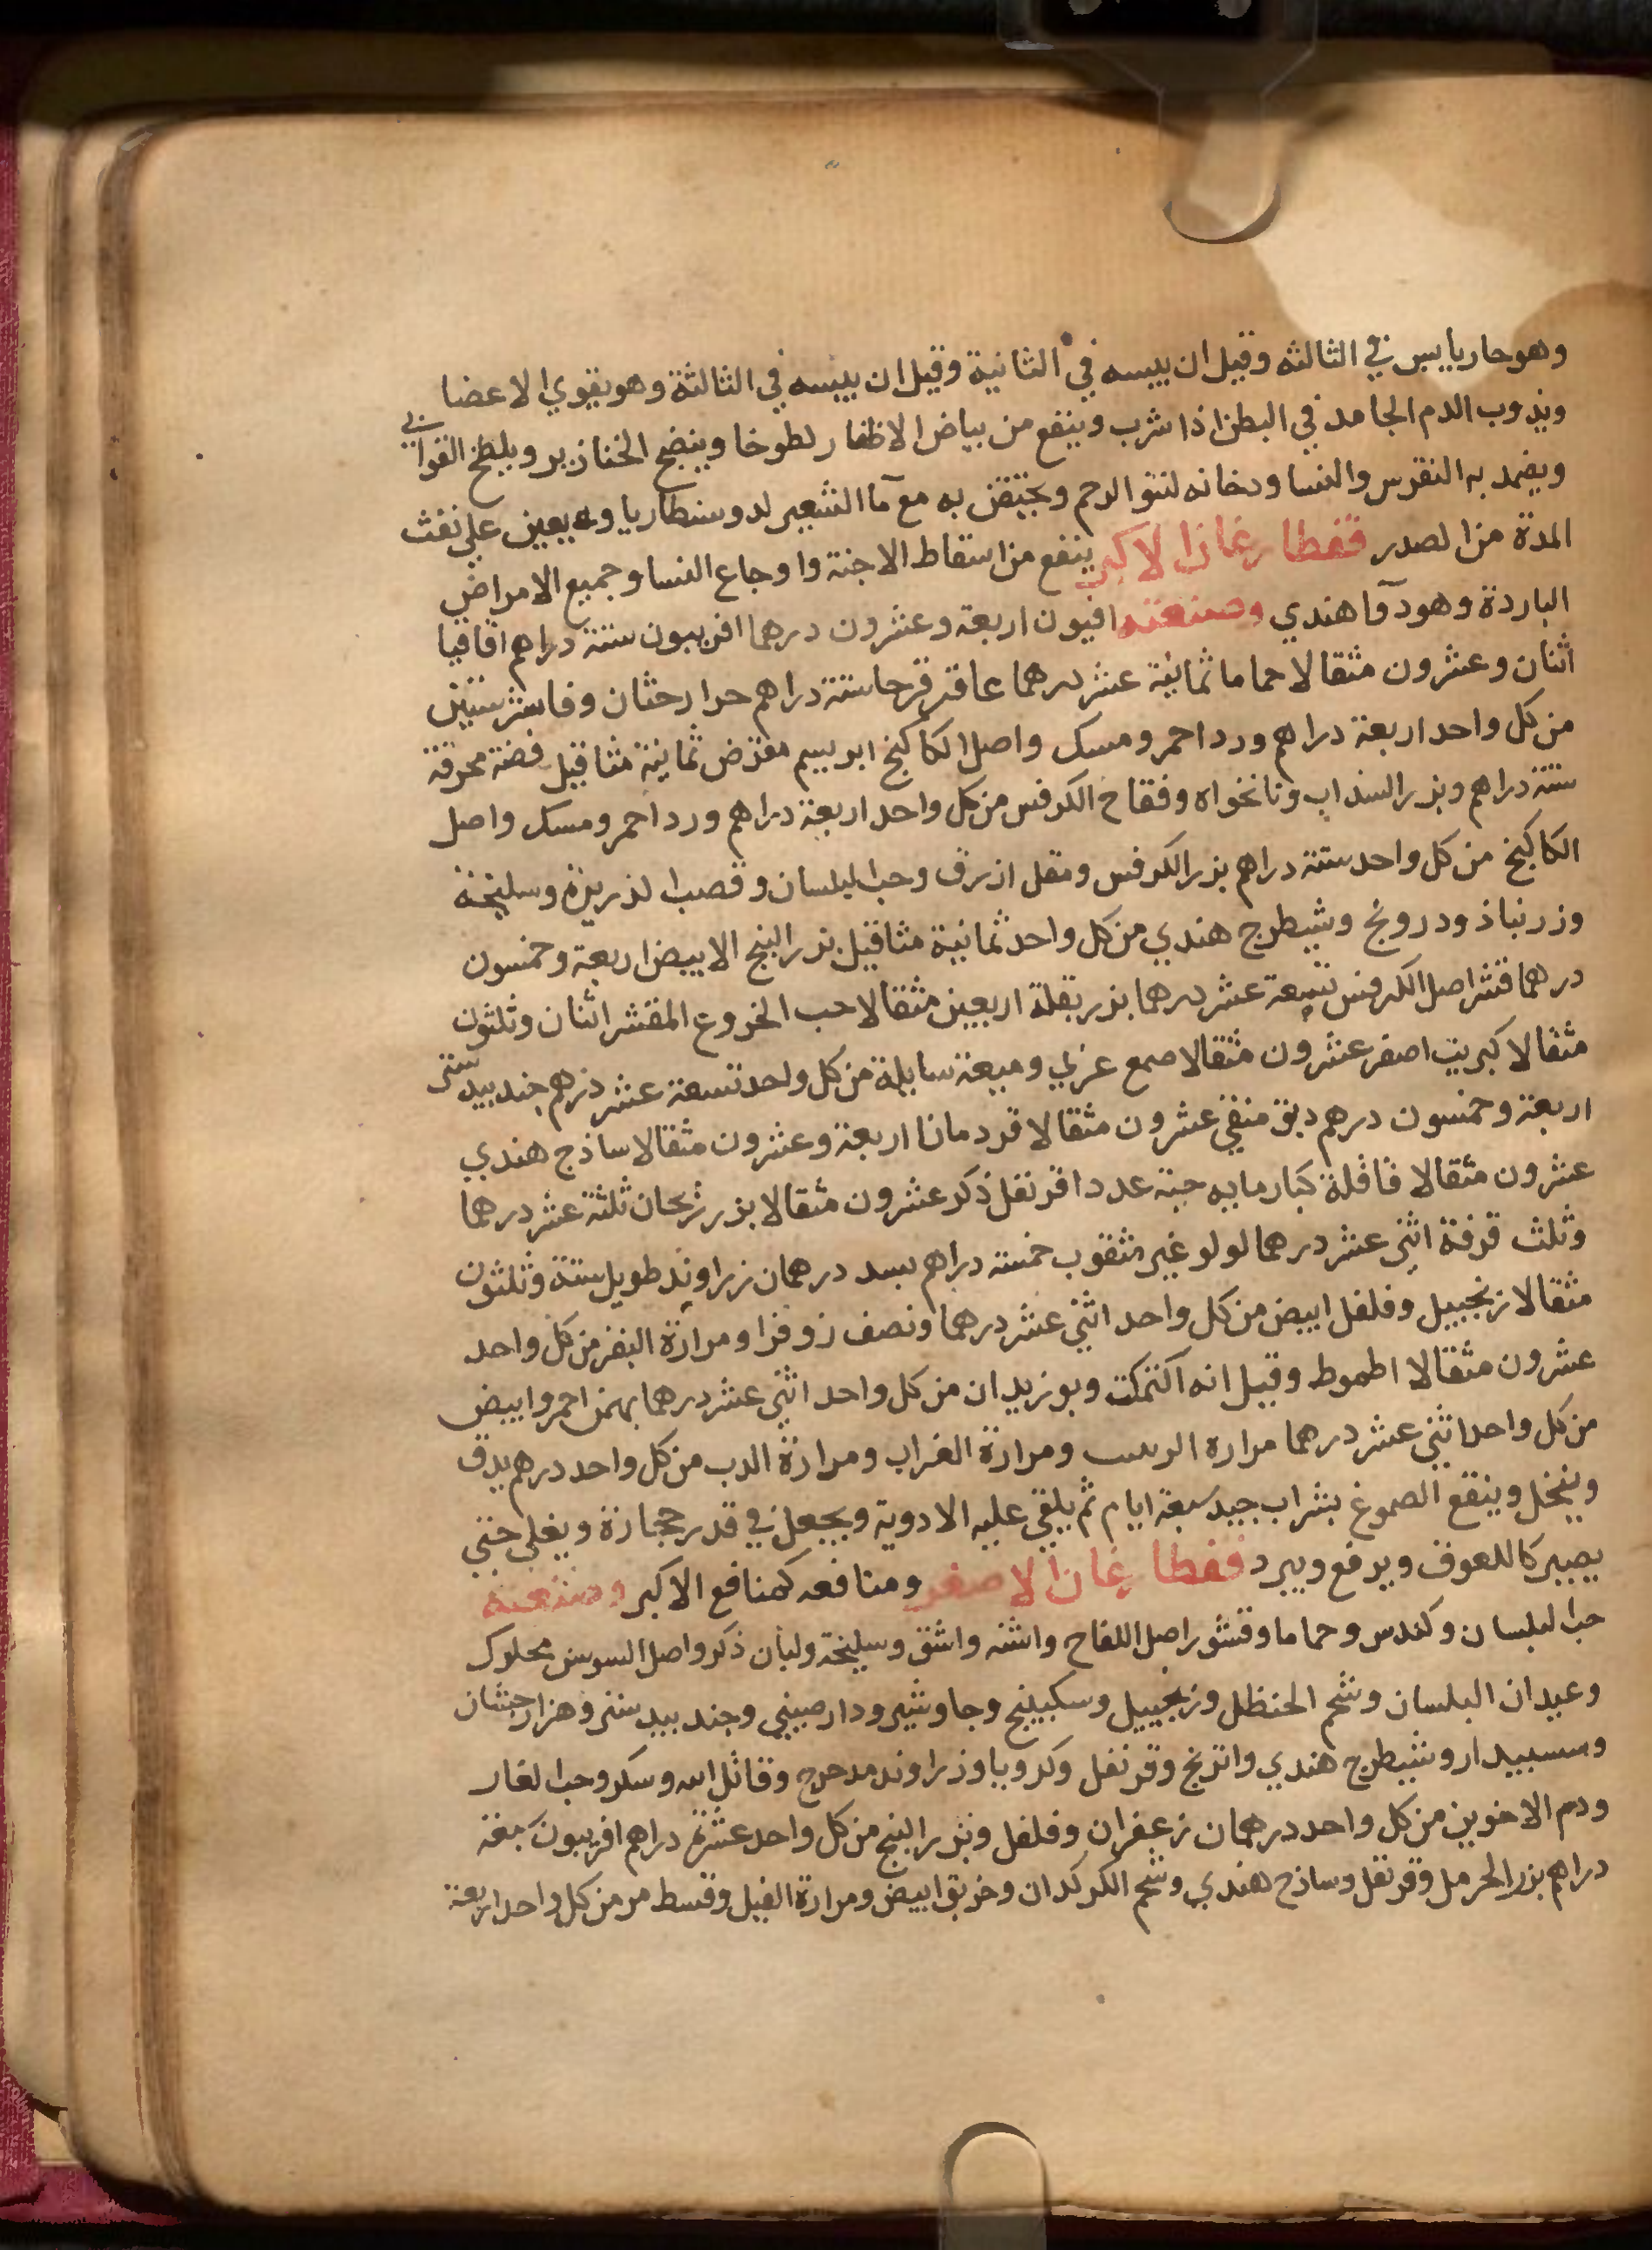 وهو حار يابس في الثالثه وقيل ان يبسه في الثانية وقيل ان يبسه في الثالثة وهو يقوي الاعضا
ويذوب الدم الجامد في البطن اذا شرب وينفع من بياض الاظفار لطوخا وينضج الخنازير ويلطخ القوابي
ويضمد به النقرس والنسا ودخانه لنتو الرحم ويحتقن به مع ما الشعير لدوسنطاريا ويعين علي نفث
المدة من الصدر قفطارغان الاكبر ينفع من اسقاط الاجنة واوجاع النسا وجميع الامراض
الباردة وهو دوا هندي وصنعته افيون اربعة وعشرون درهما افربيون ستة دراهم اقاقيا
اثنان وعشرون مثقالا حماما ثمانية عشر درهما عاقر قرحا ستة دراهم حرارحثان وفاشرستين
من كل واحد اربعة دراهم ورد احمر ومسك واصل الكاكنج ابريسم مقرض ثمانية مثاقيل فضة محرقة
ستة دراهم وبزر السذاب ونانخواه وفقاح الكرفس من كل واحد اربعة دراهم ورد احمر ومسك واصل
الكاكنج من كل واحد ستة دراهم بزر الكرفس ومقل ازرق وحب البلسان وقصب الذريرة وسليخة
وزرنباذ ودرونج وشيطرج هندي من كل واحد ثمانية مثاقيل بزر البنج الابيض اربعة وخمسون
درهما قشر اصل الكرفس تسعة عشر درهما بزر بقلة اربعين مثقالا حب الخروع المقشر اثنان وثلثون
مثقالا كبريت اصفر عشرون مثقالا صمع عربي وميعة سايلة من كل واحد تسعة عشر درهم جندبيدستر
اربعة وخمسون درهم دبق منقي عشرون مثقالا قردمانا اربعة وعشرون مثقالا ساذج هندي
عشرون مثقالا قاقلة كبار مايه حبة عددا قرنفل ذكر عشرون مثقالا بزر ريحان ثلثة عشر درهما
وثلث قرفة اثني عشر درهما لولو غير مثقوب خمسة دراهم بسد درهمان زراوند طويل ستة وثلثون
مثقالا زنجبيل وفلفل ابيض من كل واحد اثني عشر درهما ونصف زوفرا ومرارة البقر من كل واحد
عشرون مثقالا اطموط وقيل انه اكتمكت وبوزيدان من كل واحد اثني عشر درهما بهمن احمر وابيض
من كل واحد اثني عشر درهما مرارة ومرارة الغراب ومرارة الدب من كل واحد درهم يدق
وينخل وينقع الصموغ بشراب جيد سبعة ايام ثم يلقي عليه الادوية ويجعل في قدر حجارة ويغلي حتي
يصير كاللعوق ويرفع ويبرد قفطارغان الاصغر ومنافعه كمنافع الاكبر وصنعته
حب البلسان وكندس وحماما وقشور اصل اللفاح واشنه واشق وسليخة ولبان ذكر واصل السوس محلوك
وعيدان البلسان وشحم الحنظل وزنجبيل وسكبينج وجاوشير ودارصيني وجندبيدستر وهزارحشان
وسسبيدار وشيطرج هندي واترنج وقرنفل وكرويا وزراوند مدحرج وقاتل ابيه وسكر وحب الغار
ودم الاخوين من كل واحد درهمان زعفران وفلفل وبزر البنج من كل واحد عشرة دراهم افربيون
دراهم بزر الحرمل وقرنفل وساذج هندي وشحم الكركدان وخربق ابيض ومرارة الفيل وقسط مر من كل واحد اربعة